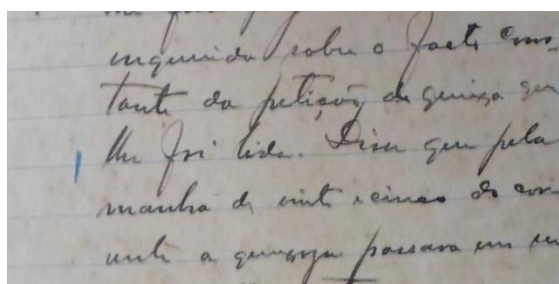 inquirida sobre o facto cons
tante da petição de queixa que
lhe foi lida. Disse que pela
manha de vinte e cinco do cor
rente a queixosa passara em seu